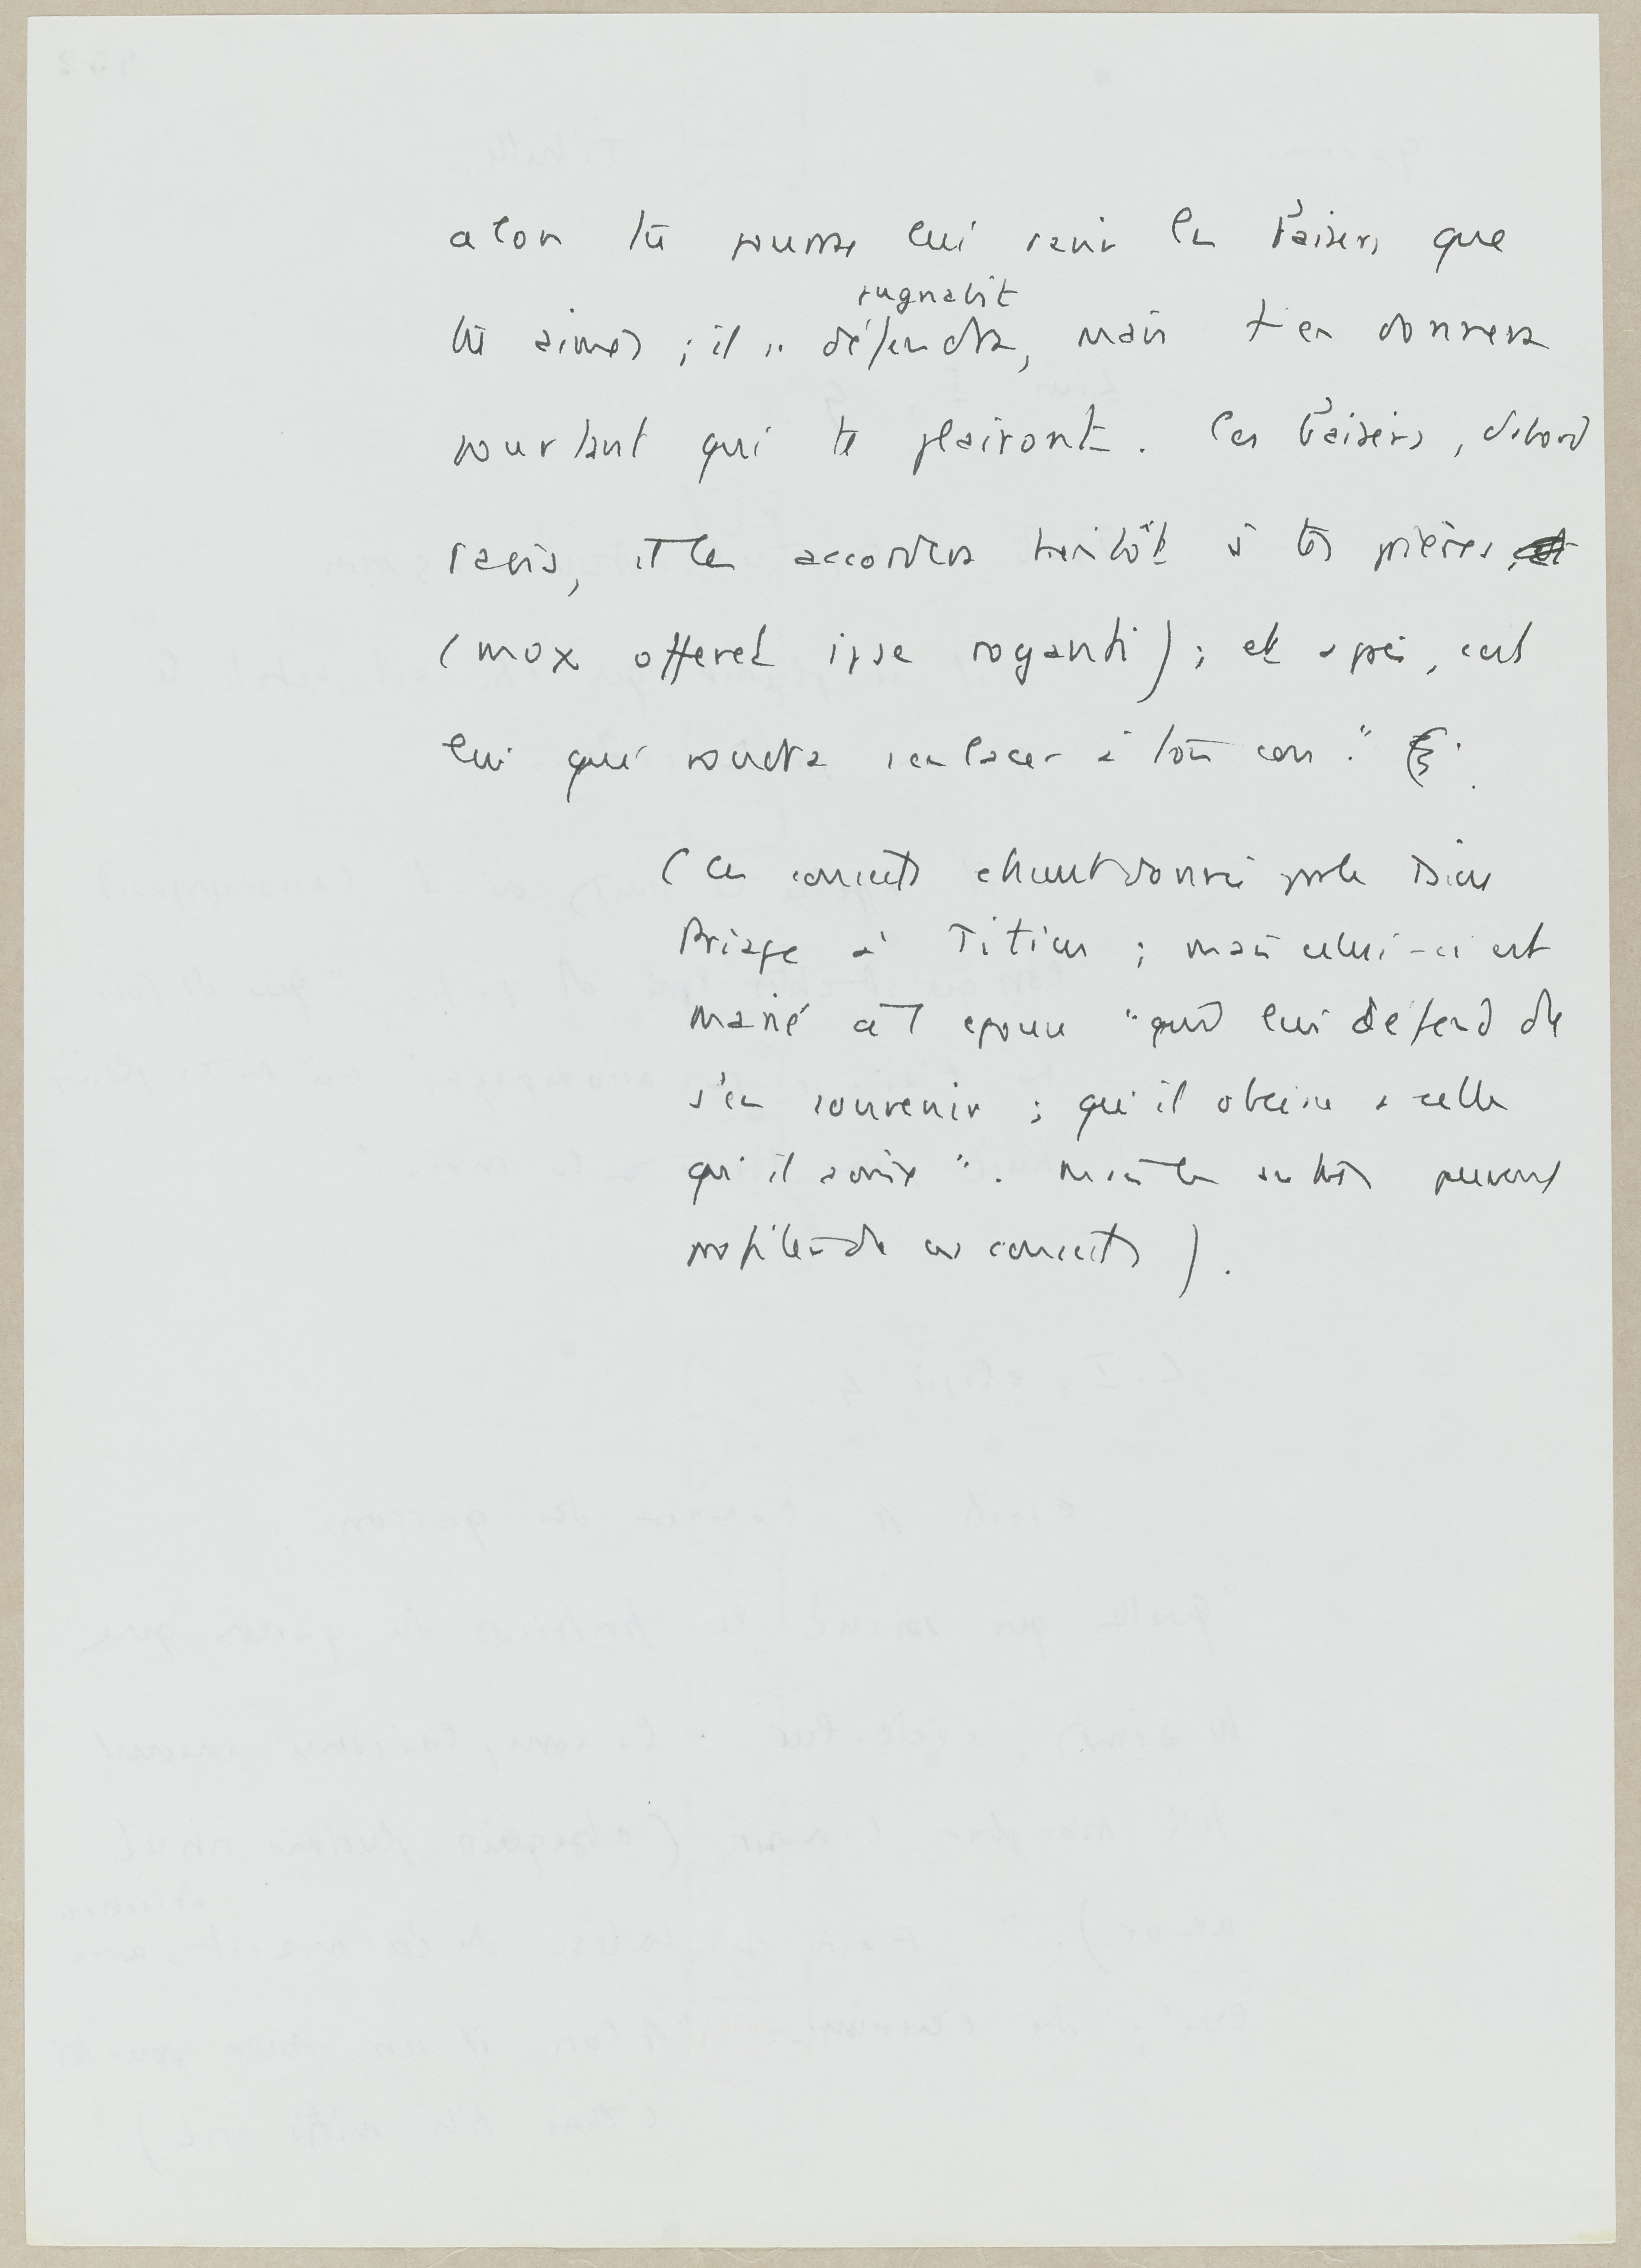 alors tu pourras lui ravir les baisers que
pugnabit
tu aimes ; il se défendra, mais t'en donnera
pourtant qui te plairont. Ces baisers, d'abord
ravis, il les accordera bientôt à tes prières,
(mox offeret ipse roganti) ; et après, c'est
lui qui voudra s'enlacer à ton cou."
(Ces conseils étaient donnés par le Dieu
Priape à Titius ; mais celui-ci est
marié et l'épouse "qui lui défend de
s'en souvenir ; qu'il obéisse à celle
qu'il a prise". Mais les autres peuvent
profiter de ces conseils).